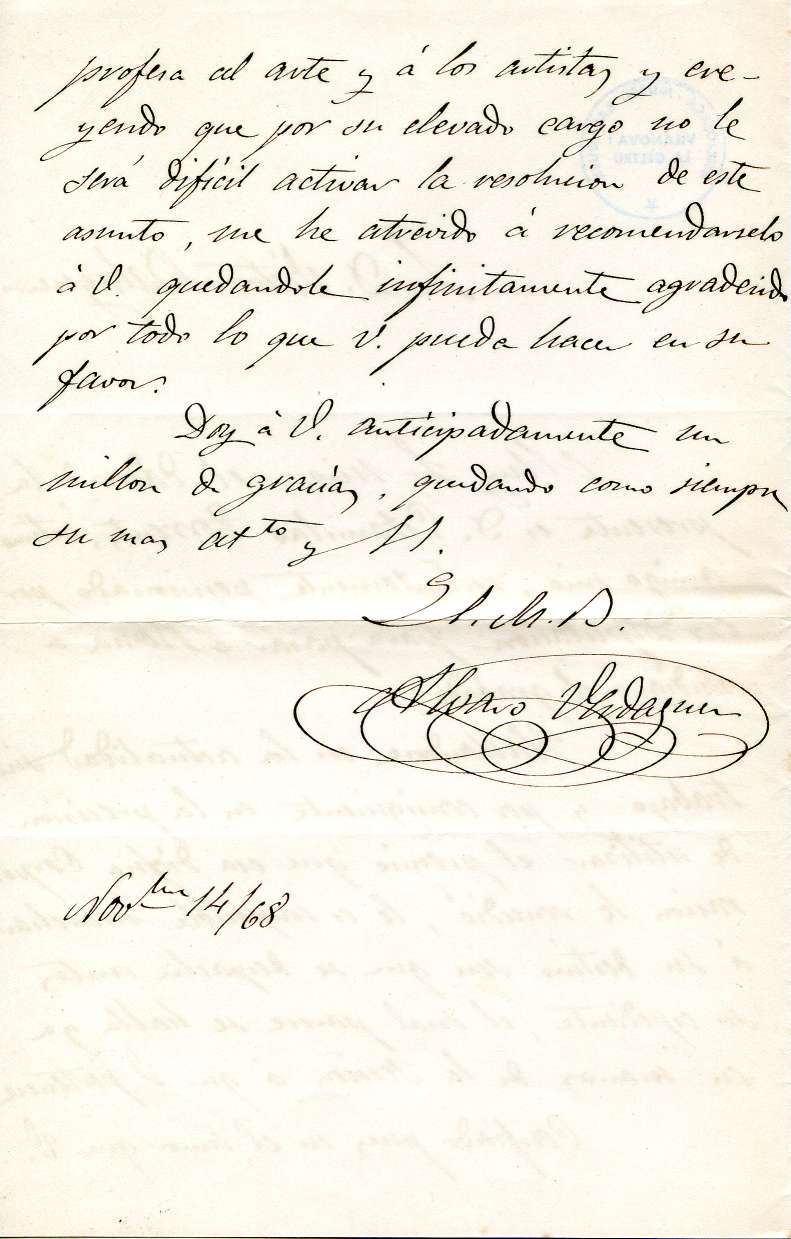 profesa al arte y á los artistas y cre-
yendo que por su elevado cargo no le
será difícil activar la resolucion de este
asunto, me he atrevido á recomendarselo
á V. quedandole infinitamente agradecido
por todo lo que V. pueda hacer en su
favor.
Doy á V. anticipadamente un
millon de gracias, quedando como siempre
su mas at.to y S.S.
Q.B.S.M.
Alvaro Verdaguer
Novbre 14/68